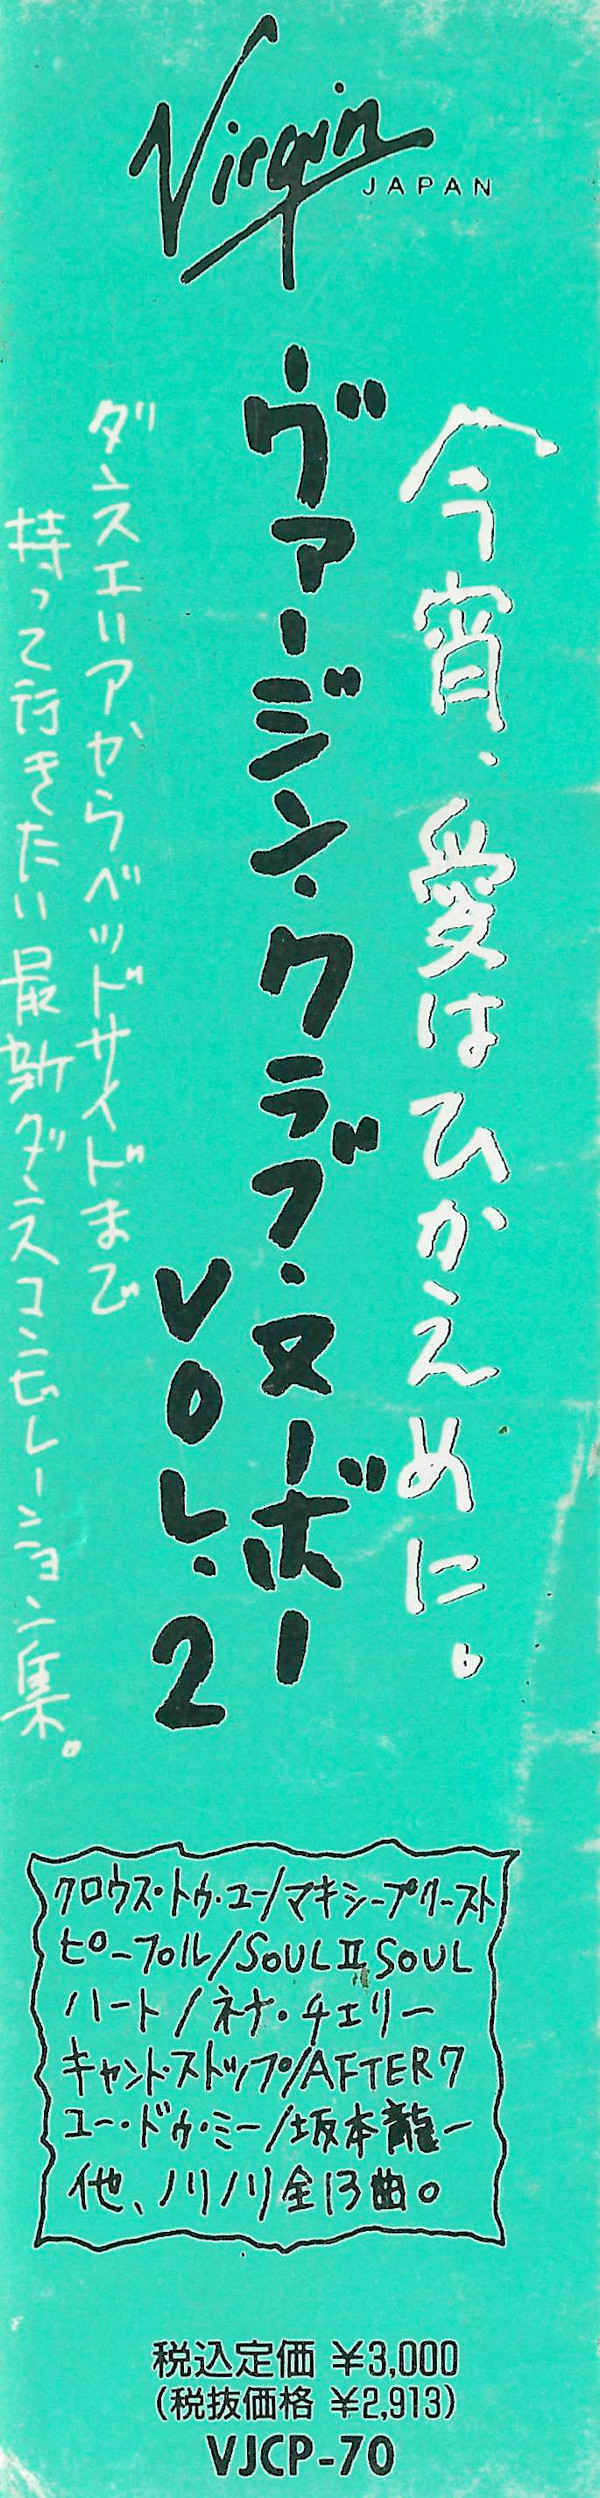 Virgin
JAPAN
今宵、愛はひかえめに。
ヴァージン・クラブ・ヌーボー
VOL.2
ダンスエリアからベッドサイドまで
持って行きたい最新ダンスコンピレーション集。
クロウス・トゥ・ユー/マキシープリースト
ピープル/SOUL II SOUL
ハート/ネナ・チェリー
キャント・ストップ/AFTER7
ユー・ドゥ・ミー/坂本龍一
他、ノリノリ全13曲。
税込定価 ¥3,000
(税抜価格 ¥2,913)
VJCP-70